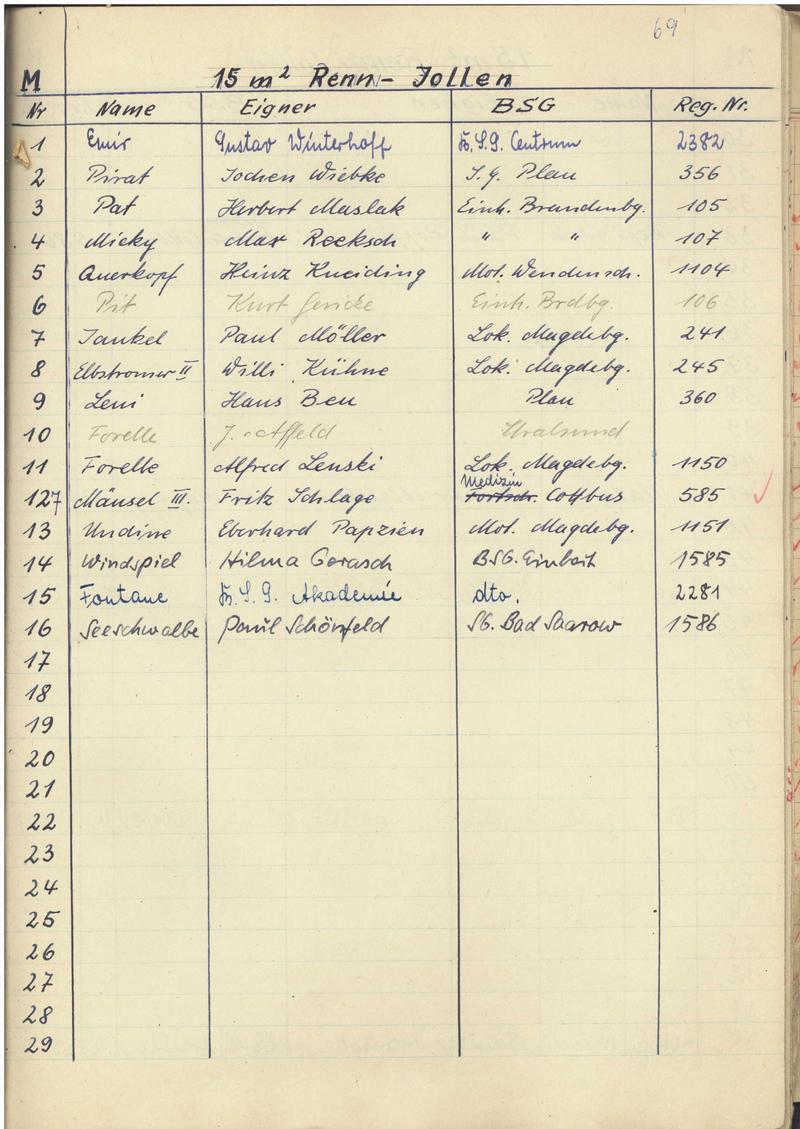 69
M 15 m² Renn-Jollen
Nr Name Eigner BSG Reg. Nr.
1 Emir Gustav Winterhoff H.S.G. Centrum 2382
2 Pirat Jochen Wiebke S.G. Plau 356
3 Pat Herbert Maslak Einh. Brandenbg. 105
4 Micky Max Recksch " " 107
5 Querkopf Heinz Kneiding Mot. Wendensch. 1104
6 Pit Kurt Gericke Einh. Brdbg. 106
7 Jankel Paul Möller Lok. Magdebg. 241
8 Elbstromer II Willi Kühne Lok. Magdebg. 245
9 Leni Hans Beu Plau 360
10 Forelle J. Affeld Stralsund
11 Forelle Alfred Lenski Lok. Magdebg. 1150
Medizin
127 Mäusel III. Fritz Schlage Fortschr. Cottbus 585
13 Undine Eberhard Papzien Mot. Magdebg. 1151
14 Windspiel Hilma Gorasch BSG. Einheit 1585
15 Fontane H.S.G. Akademie dto. 2281
16 Seeschwalbe Paul Schönfeld SG. Bad Saarow 1586
17
18
19
20
21
22
23
24
25
26
27
28
29